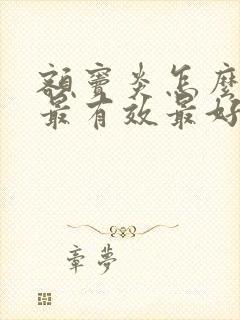 额窦炎怎麽
最有效最好
章梦